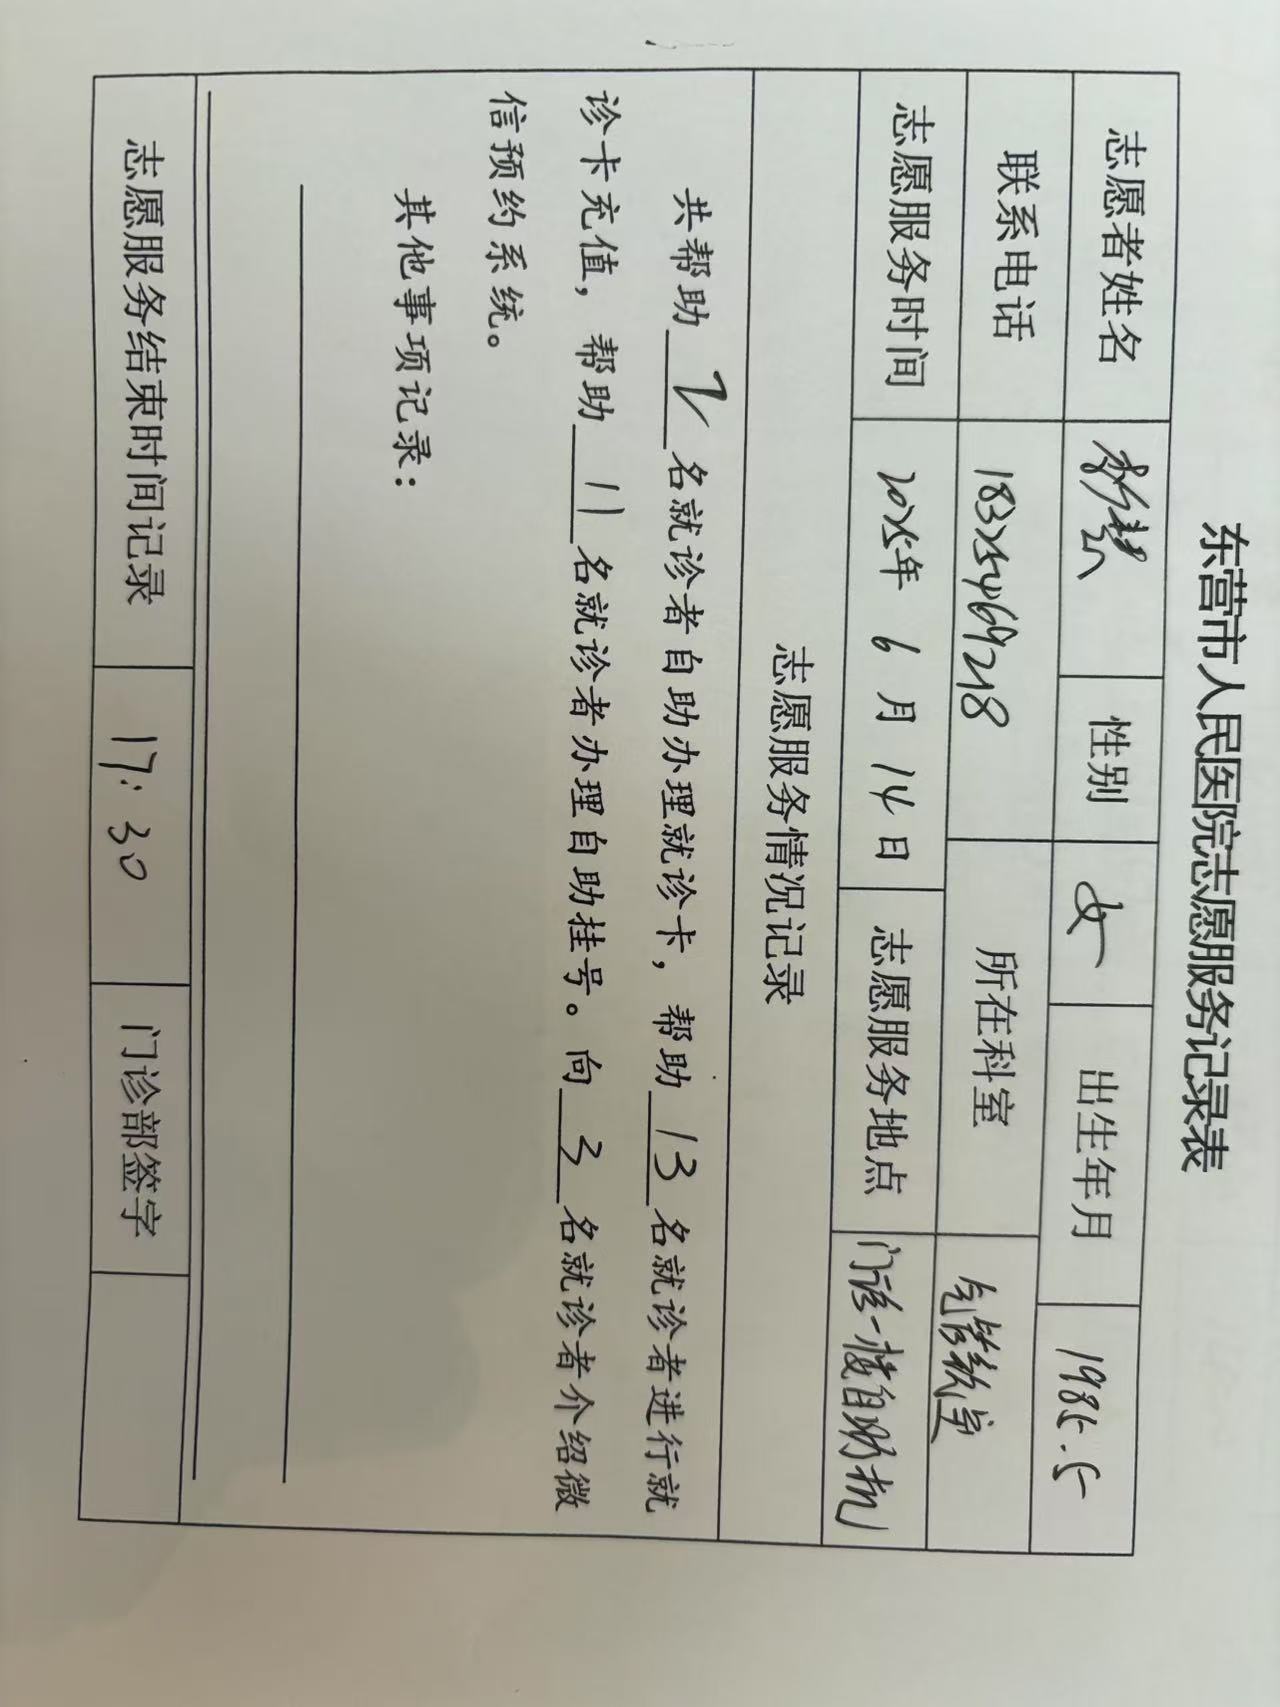 东营市人民医院志愿服务记录表
志愿者姓名 性别 女 出生年月 1985.5
联系电话 18325469218 所在科室
志愿服务时间 2025年 6 月 14 日 志愿服务地点 门诊一楼自助机
志愿服务情况记录
共帮助 2 名就诊者自助办理就诊卡，帮助 13 名就诊者进行就
诊卡充值，帮助 11 名就诊者办理自助挂号。向 3 名就诊者介绍微
信预约系统。
其他事项记录：
志愿服务结束时间记录 17:30 门诊部签字